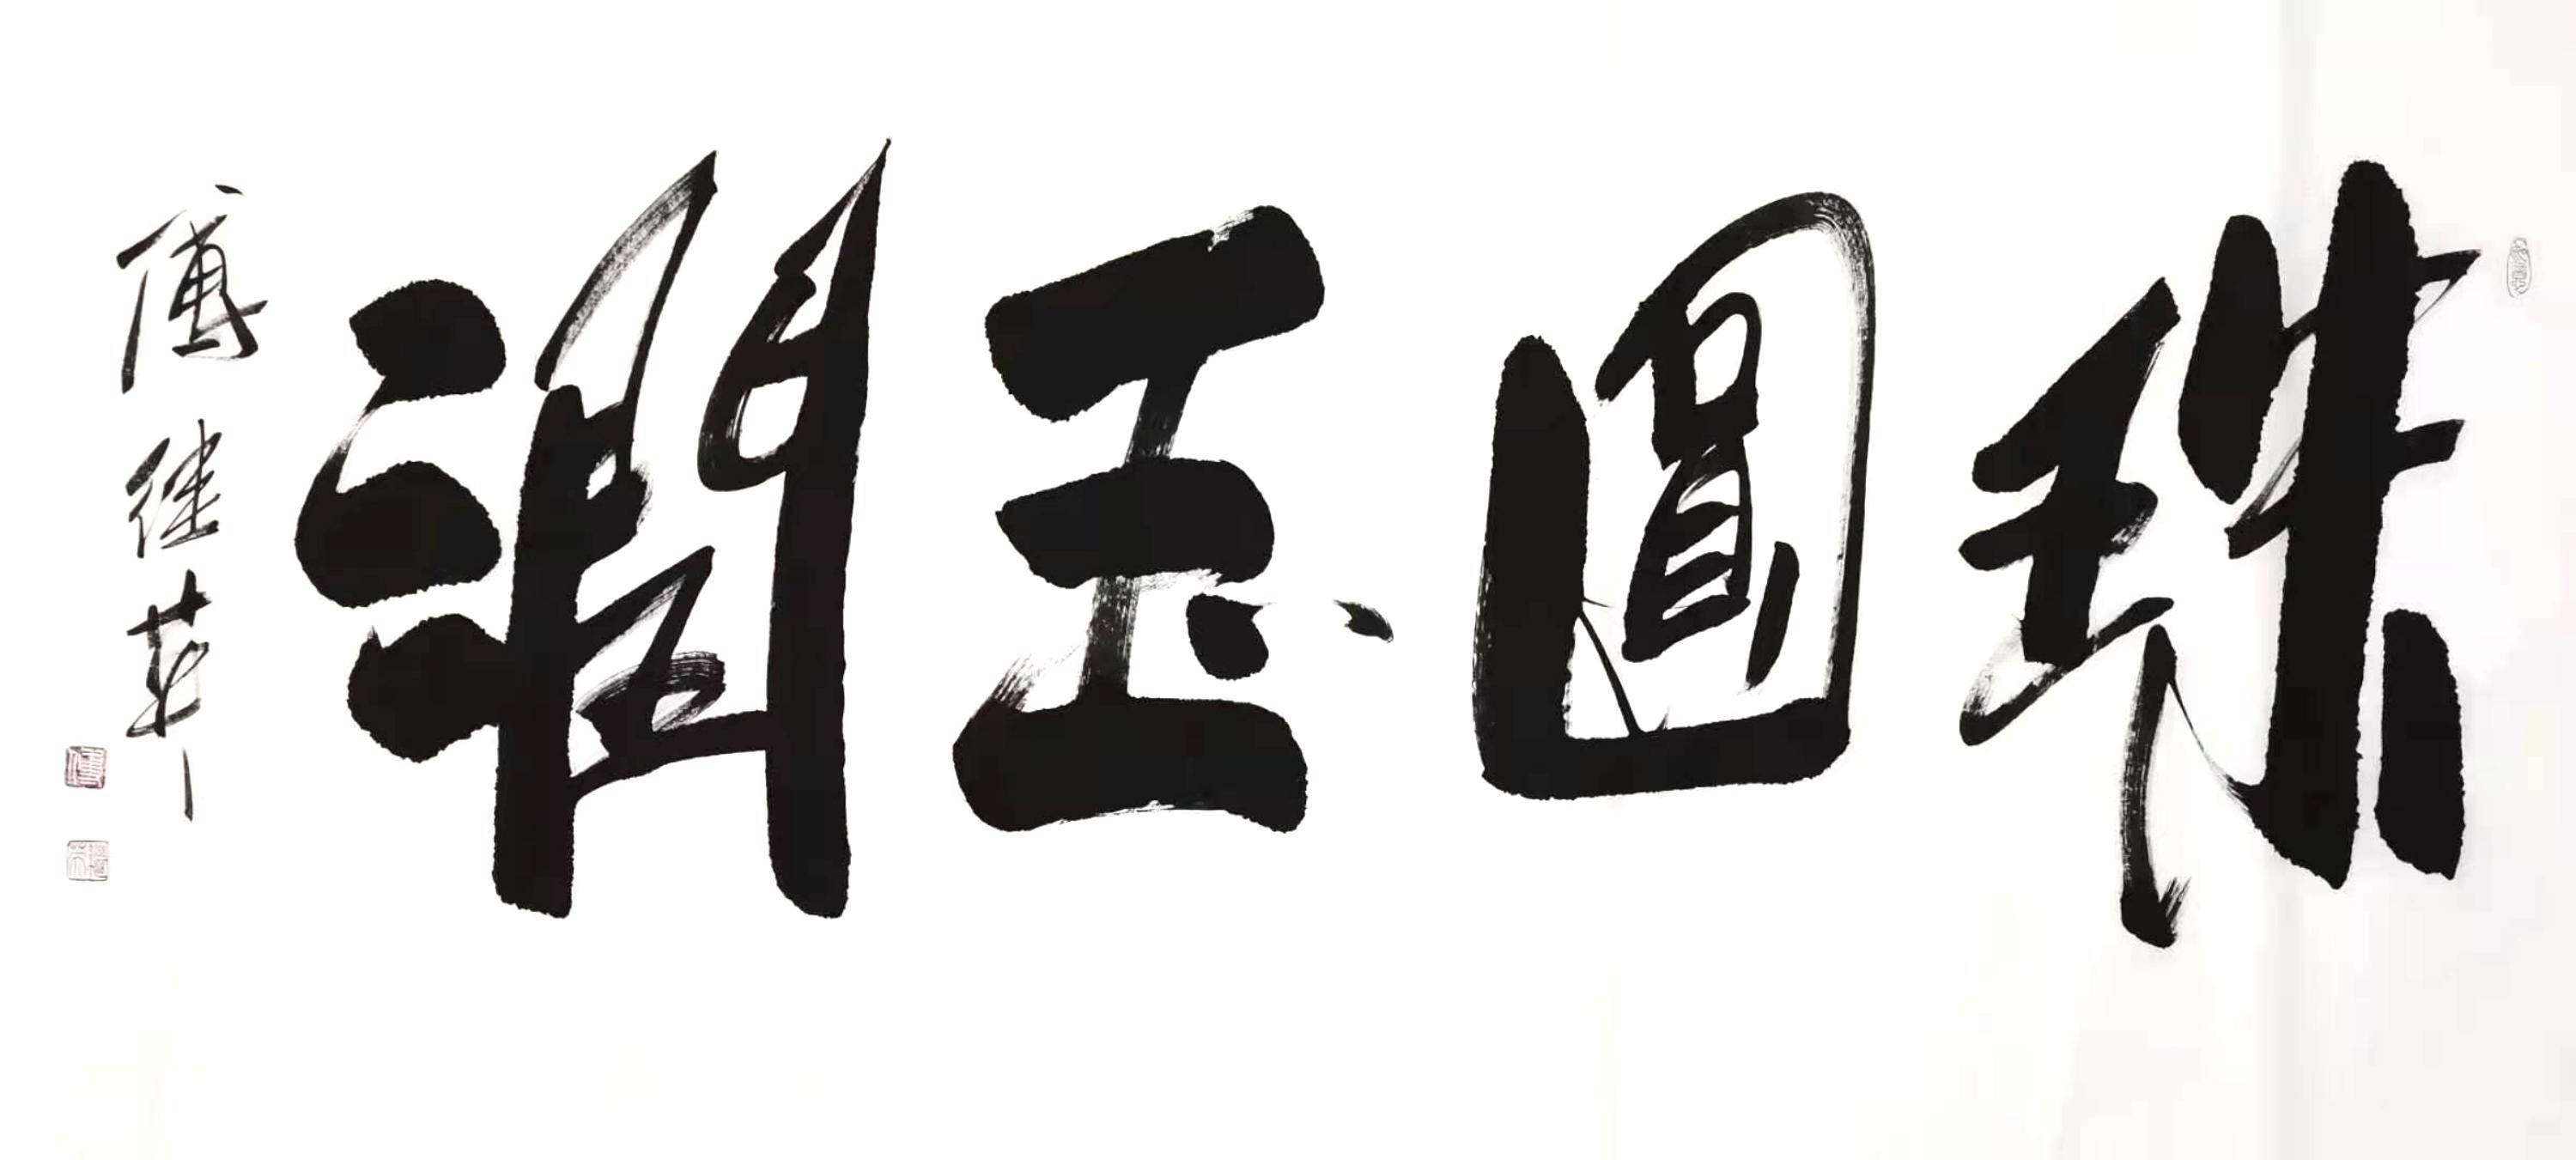 珠圓玉潤
傅繼英